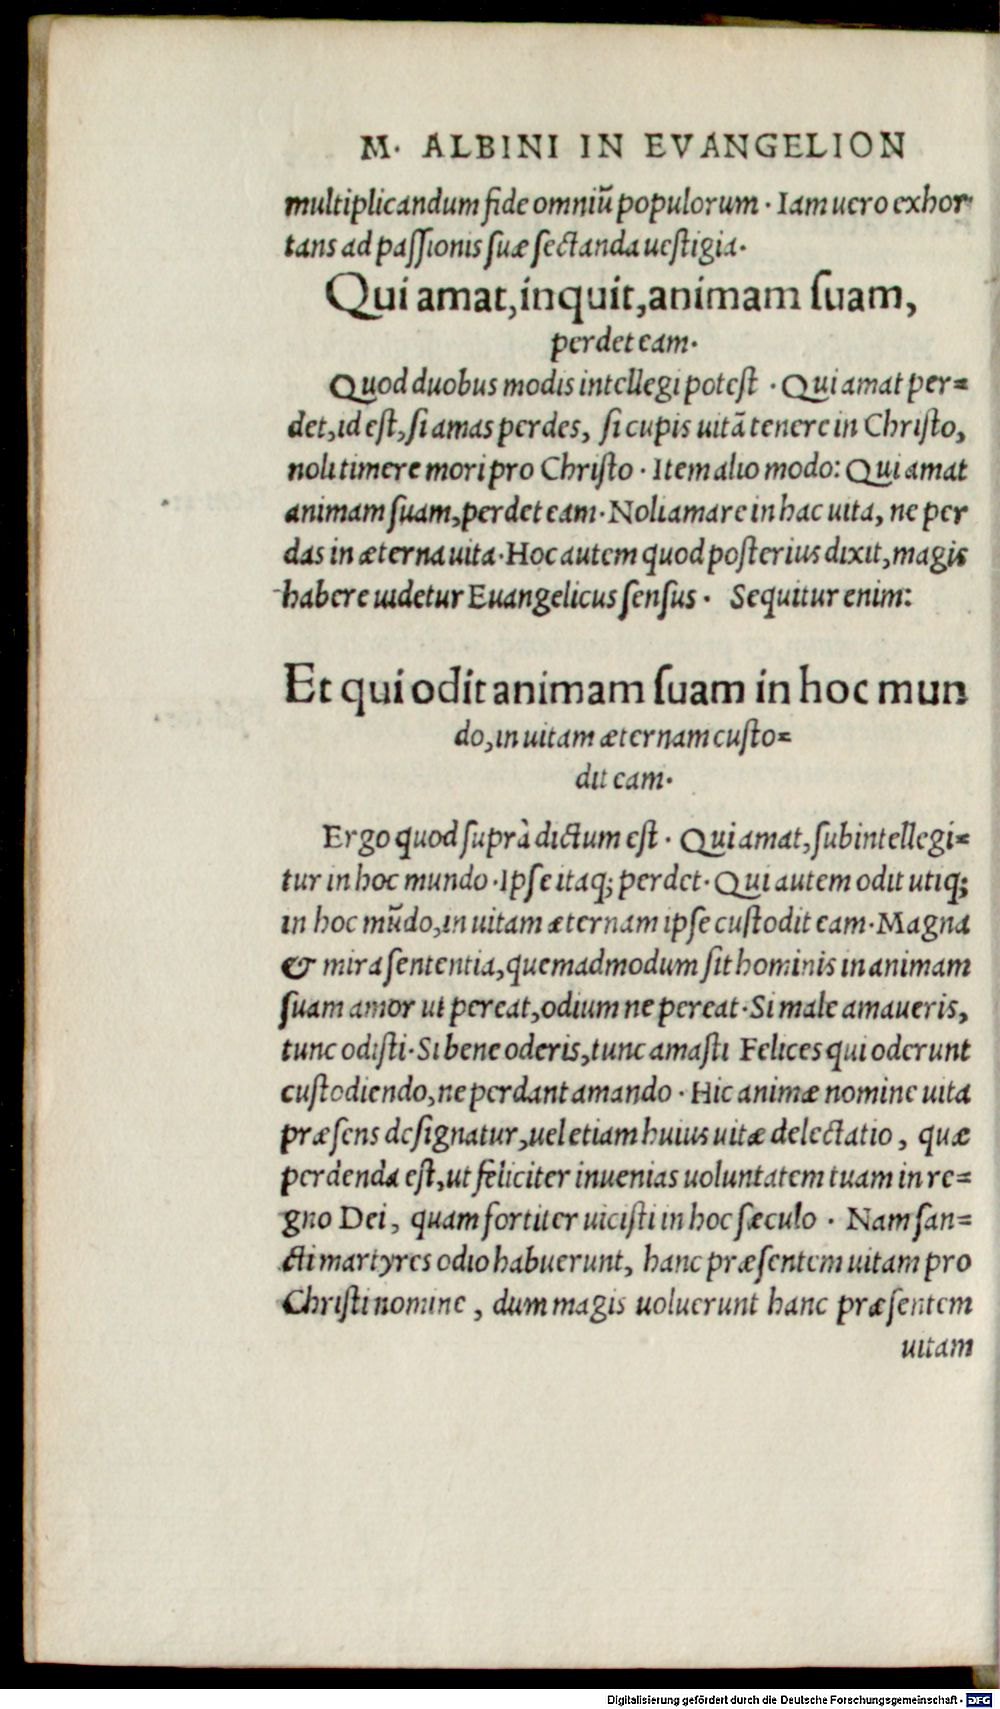 M. ALBINI IN EVANGELION
multiplicandum fide omniū populorum. Iam uero exhor-
tans ad passionis suæ sectanda uestigia.
Qui amat, inquit, animam suam,
perdet eam.
Quod duobus modis intellegi potest . Qui amat per=
det, id est, si amas perdes, si cupis uitā tenere in Christo,
noli timere mori pro Christo. Item alio modo: Qui amat
animam suam, perdet eam. Noli amare in hac uita, ne per
das in æterna uita. Hoc autem quod posterius dixit, magis
habere uidetur Euangelicus sensus. Sequitur enim:
Et qui odit animam suam in hoc mun
do, in uitam æternam custo=
dit eam.
Ergo quod suprà dictum est. Qui amat, subintellegi=
tur in hoc mundo. Ipse itaq; perdet. Qui autem odit utiq;
in hoc mūdo, in uitam æternam ipse custodit eam. Magna
& mira sententia, quemadmodum sit hominis in animam
suam amor ut pereat, odium ne pereat. Si male amaueris,
tunc odisti. Si bene oderis, tunc amasti Felices qui oderunt
custodiendo, ne perdant amando. Hic animæ nomine uita
præsens designatur, uel etiam huius uitæ delectatio, quæ
perdenda est, ut feliciter inuenias uoluntatem tuam in re=
gno Dei, quam fortiter uicisti in hoc sæculo. Nam san=
cti martyres odio habuerunt, hanc præsentem uitam pro
Christi nomine, dum magis uoluerunt hanc præsentem
uitam
Digitalisierung gefördert durch die Deutsche Forschungsgemeinschaft - DFG